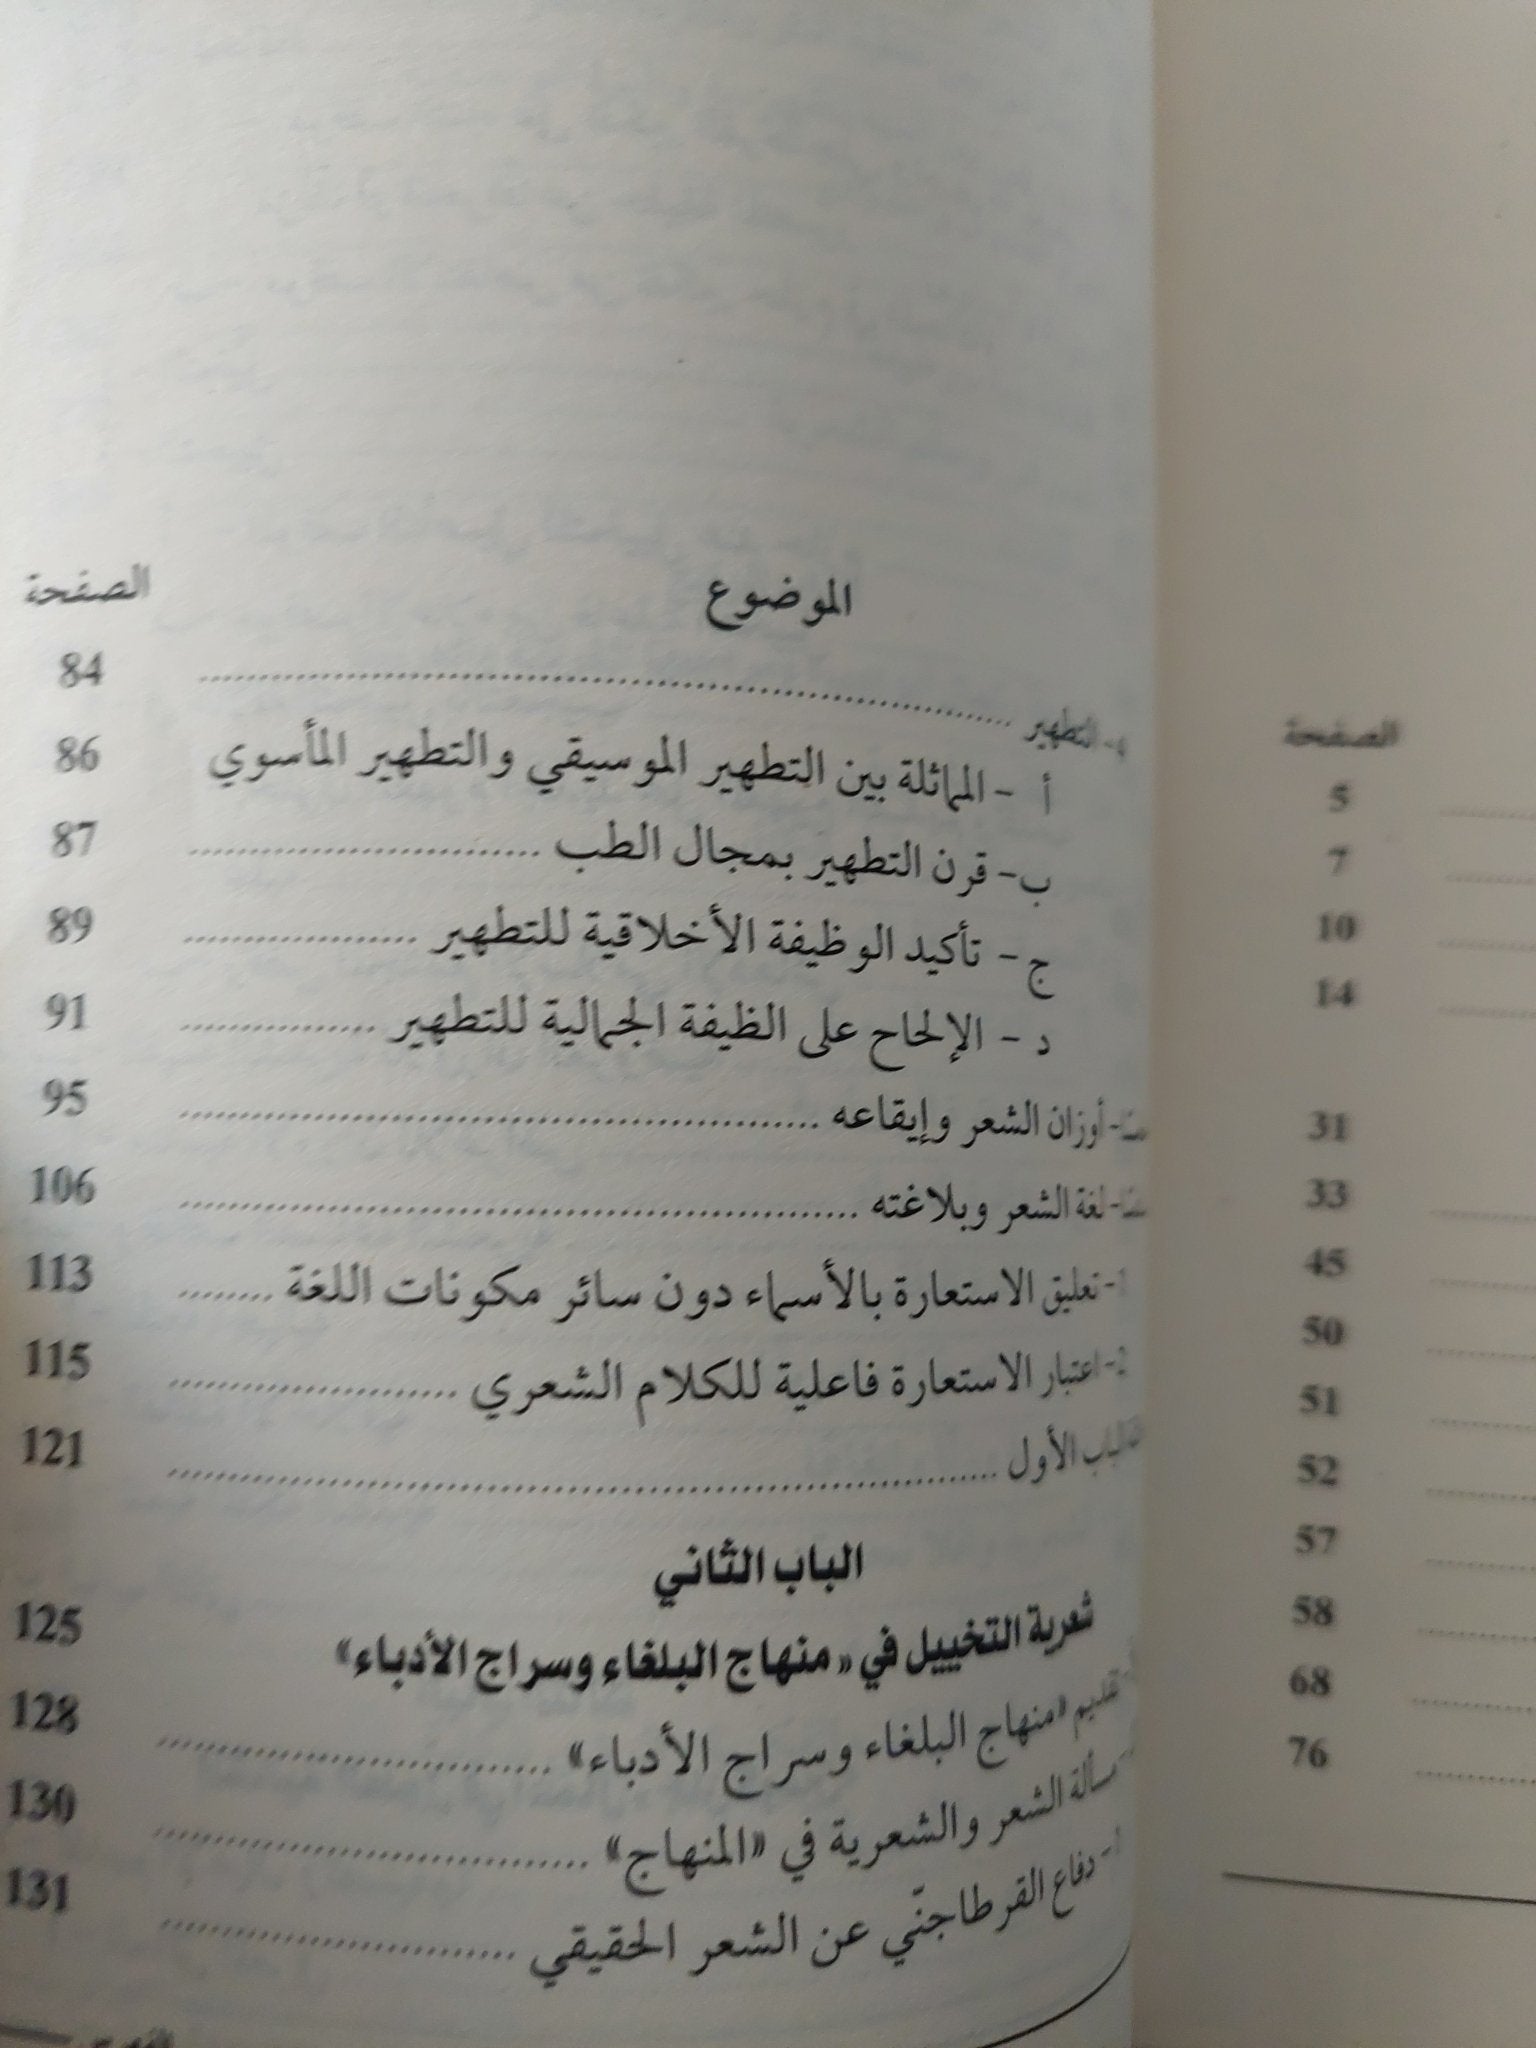 الصفحة
5
7
10
14
31
33
45
50
51
52
57
58
68
76
الموضوع الصفحة
4- التطهير ........ 84
أ - المماثلة بين التطهير الموسيقي والتطهير المأسوي 86
ب- قرن التطهير بمجال الطب ........ 87
ج - تأكيد الوظيفة الأخلاقية للتطهير ........ 89
د - الإلحاح على الظيفة الجمالية للتطهير ........ 91
أوزان الشعر وإيقاعه ........ 95
لغة الشعر وبلاغته ........ 106
1- تعليق الاستعارة بالأسماء دون سائر مكونات اللغة ........ 113
2- اعتبار الاستعارة فاعلية للكلام الشعري ........ 115
الباب الأول ........ 121
الباب الثاني
شعرية التخييل في «منهاج البلغاء وسراج الأدباء» 125
تقديم «منهاج البلغاء وسراج الأدباء» ........ 128
مسألة الشعر والشعرية في «المنهاج» ........ 130
1- دفاع القرطاجنّي عن الشعر الحقيقي ........ 131